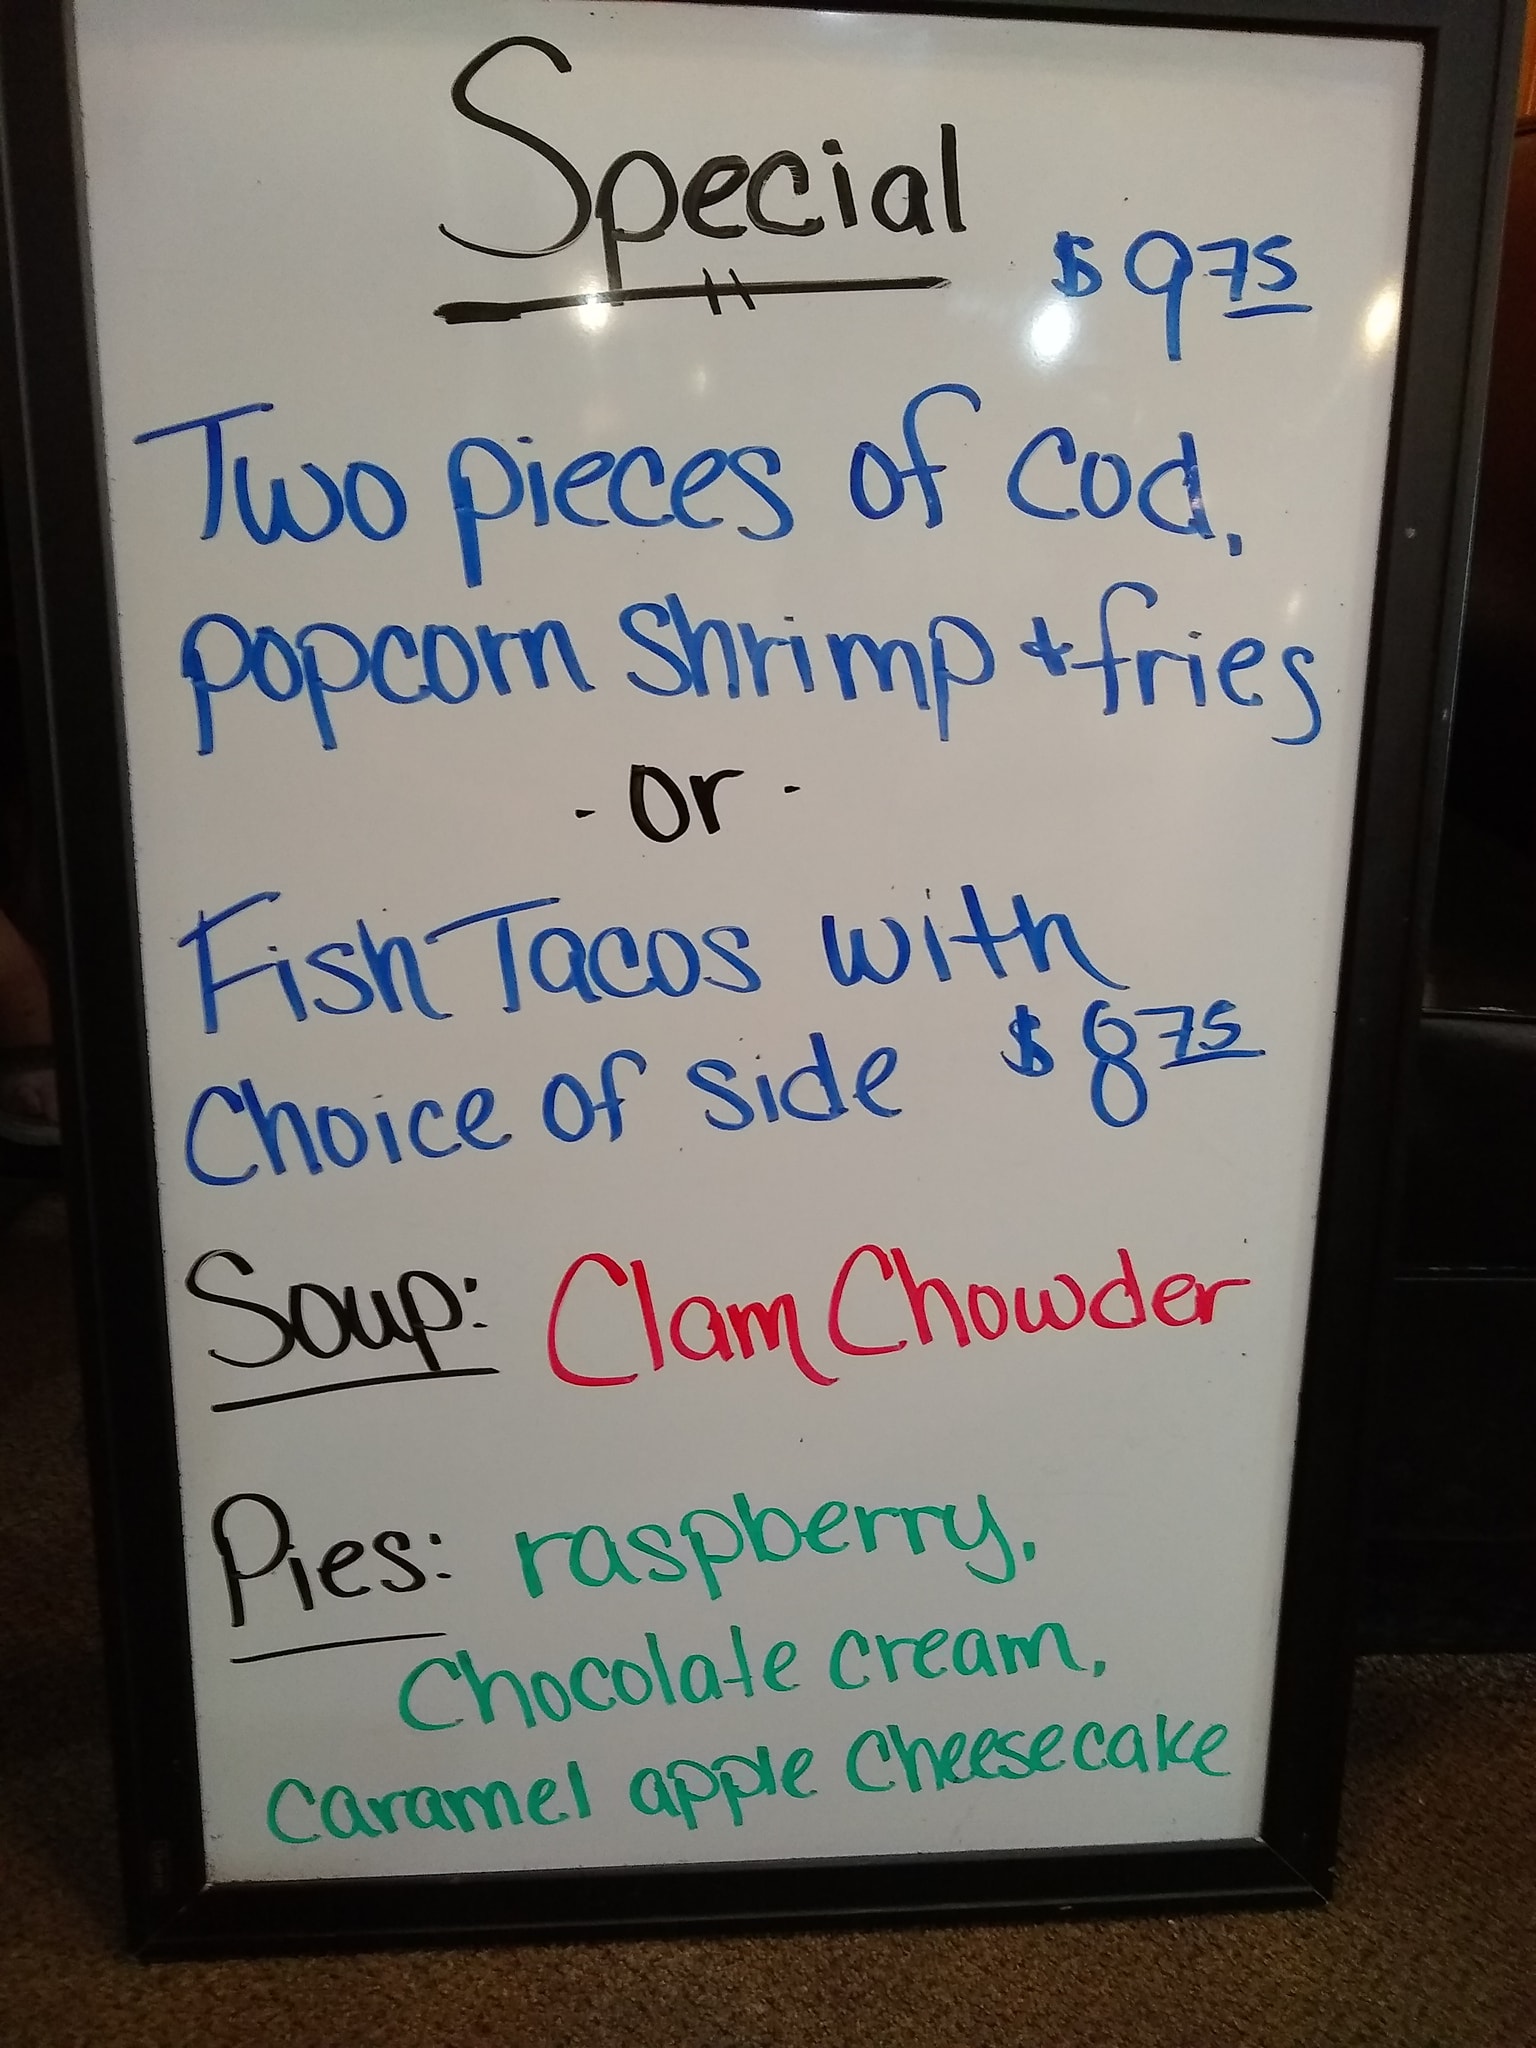 Special
$975
Two pieces of cod,
popcorn shrimp + fries
- or -
Fish Tacos with
Choice of side $875
Soup: Clam Chowder
Pies: raspberry,
Chocolate cream,
caramel apple cheesecake